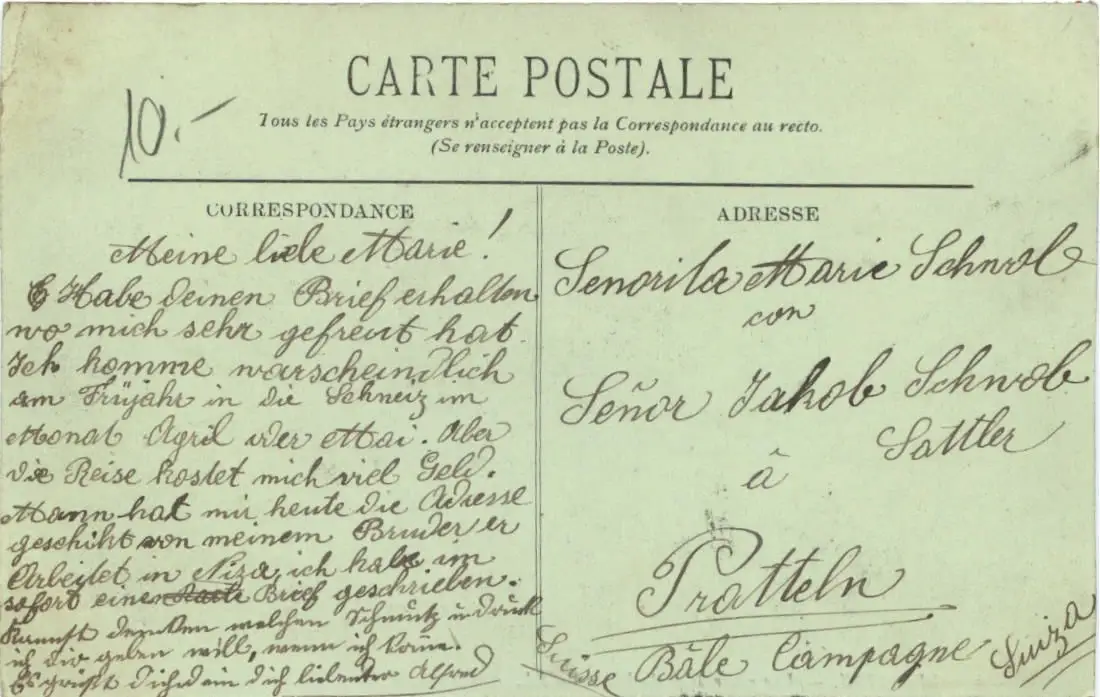 CARTE POSTALE
10.-
Tous les Pays étrangers n'acceptent pas la Correspondance au recto.
(Se renseigner à la Poste).
CORRESPONDANCE
Meine liebe Marie!
Habe deinen Brief erhalten
wo mich sehr gefreut hat.
Ich komme warscheindlich
am Früjahr in die Schweiz im
Monat April oder Mai. Aber
die Reise kostet mich viel Geld.
Mann hat mir heute die Adresse
geschikt von meinem Bruder er
Arbeitet in Niza, ich habe im
sofort einen Brief geschrieben.
Kannst denken welchen Schmutz
ich dir geben will, wenn ich komme.
Es grüßt Dich dein dich liebender Alfred
ADRESSE
Senorita Marie Schwob
con
Señor Jakob Schwob
Sattler
â
Pratteln
Suisse Bâle Campagne Suiza